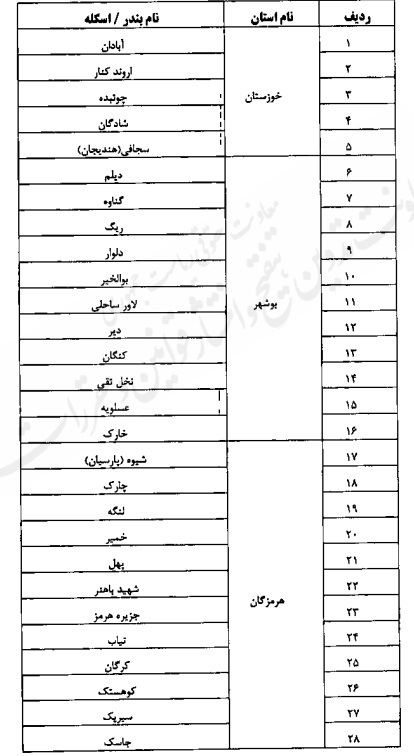 ردیف نام استان نام بندر / اسکله
۱ خوزستان آبادان
۲ اروند کنار
۳ چوئبده
۴ شادگان
۵ سجافی(هندیجان)
۶ بوشهر دیلم
۷ گناوه
۸ ریگ
۹ دلوار
۱۰ بوالخیر
۱۱ لاور ساحلی
۱۲ دیر
۱۳ کنگان
۱۴ نخل تقی
۱۵ عسلویه
۱۶ خارک
۱۷ هرمزگان شیوه (پارسیان)
۱۸ چارک
۱۹ لنگه
۲۰ خمیر
۲۱ پهل
۲۲ شهید باهنر
۲۳ جزیره هرمز
۲۴ تیاب
۲۵ کرگان
۲۶ کوهستک
۲۷ سیریک
۲۸ جاسک